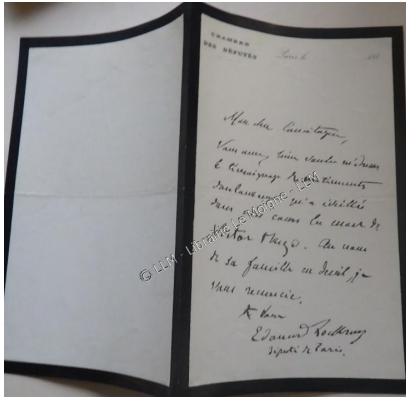 CHAMBRE
DES DÉPUTÉS
Paris, le 188
Mon cher Concitoyen,
Vous avez bien voulu m'adresser
le témoignage des sentiments
douloureux qu'a éveillés
dans vos cœurs la mort de
Victor Hugo. Au nom
de sa famille en deuil je
vous remercie.
A vous
Edouard Lockroy
député de Paris.
© LLM - Librairie Le Moigne - LLM